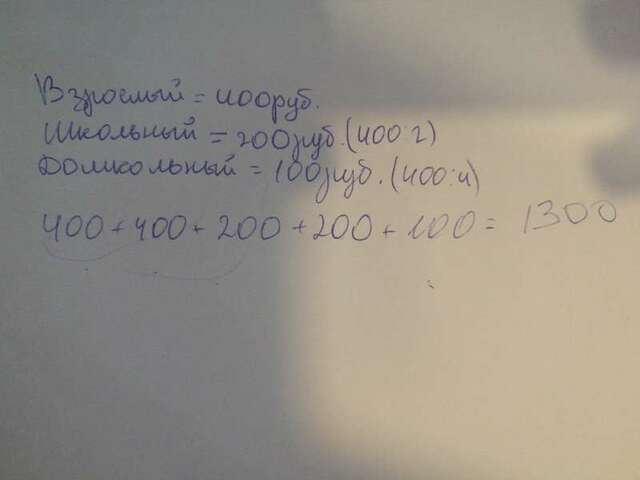 Взрослый = 400руб.
Школьный = 200руб. (400:2)
Дошкольный = 100руб. (400:4)
400 + 400 + 200 + 200 + 100 = 1300